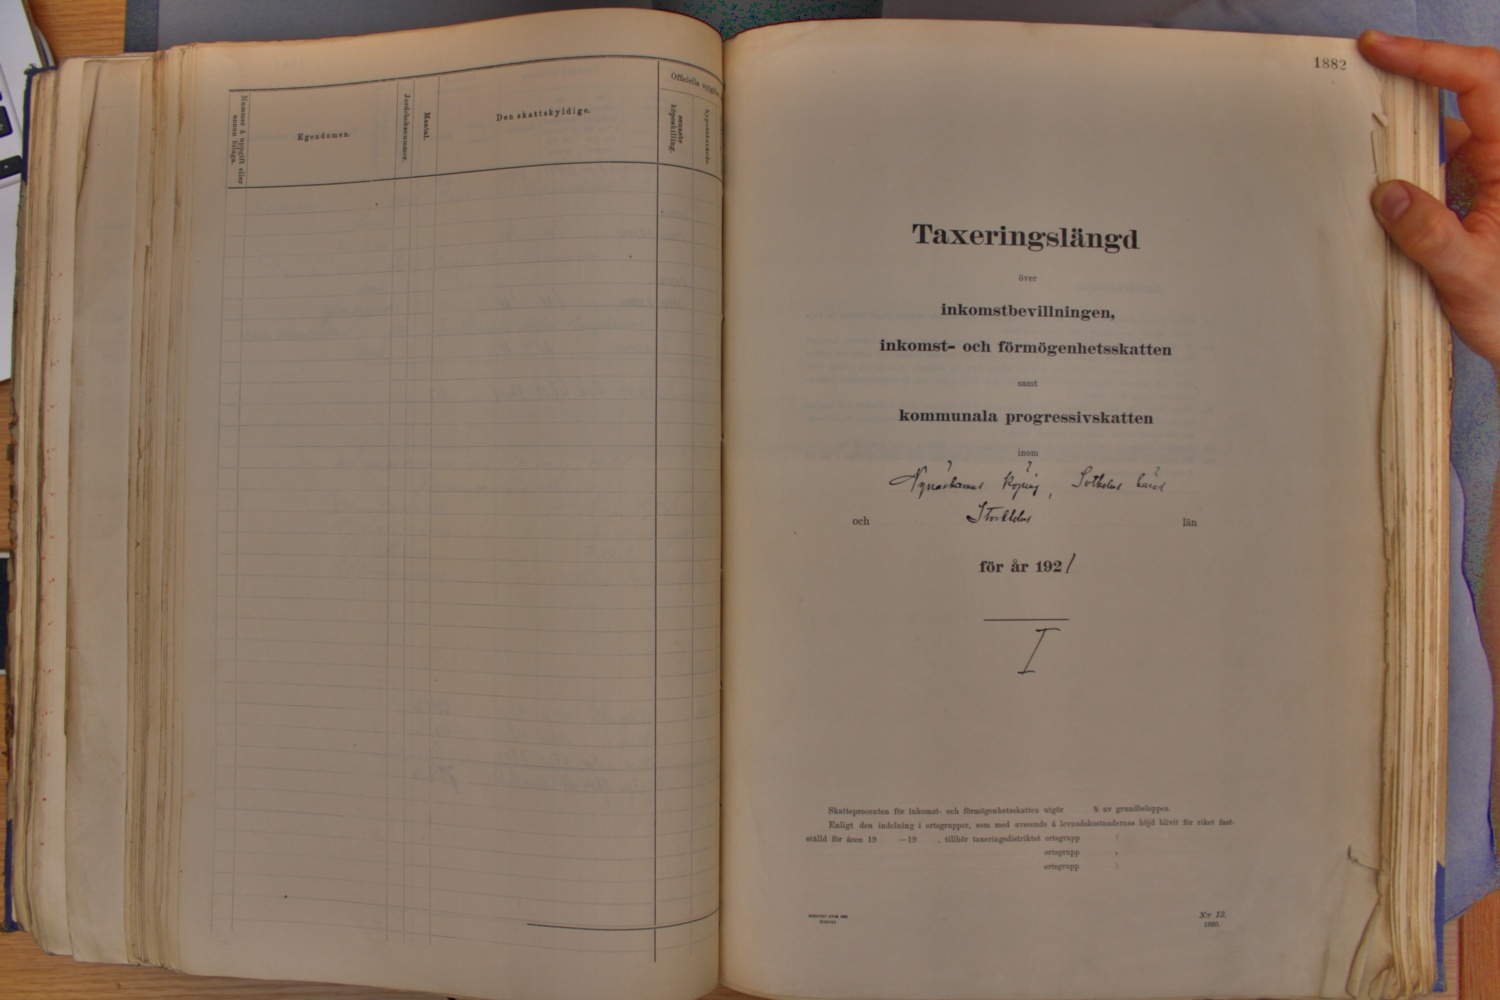 Nummer å uppgift eller
annan bilaga.
Egendomen.
Jordeboksnummer.
Mantal.
Den skattskyldige.
Officiella uppgifter
senaste
köpeskilling.
1882
Taxeringslängd
över
inkomstbevillningen,
inkomst- och förmögenhetsskatten
samt
kommunala progressivskatten
inom
Nynäshamns köping, Sotholms härad
och Stockholms län
för år 1921
I
Skatteprocenten för inkomst- och förmögenhetsskatten utgör % av grundbeloppen.
Enligt den indelning i ortsgrupper, som med avseende å levnadskostnadernas höjd blivit för riket fast-
ställd för åren 19 —19 , tillhör taxeringsdistriktet ortsgrupp
ortsgrupp
ortsgrupp
N:r 13.
1920.